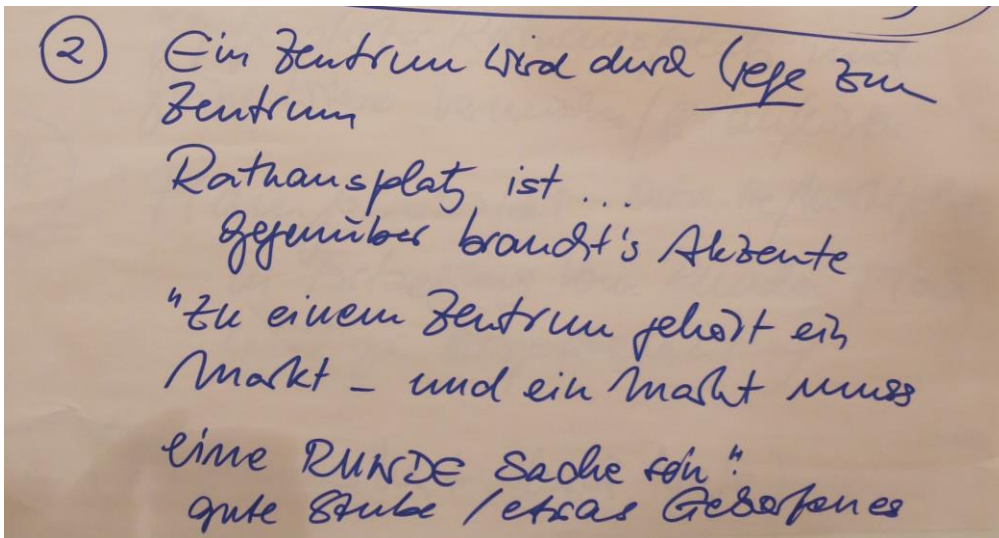 ② Ein Zentrum wird durch Wege zum
Zentrum
Rathausplatz ist ...
gegenüber braucht's Akzente
"Zu einem Zentrum gehört ein
Markt – und ein Markt muss
eine RUNDE Sache sein".
gute Stube / etwas Geborgenes